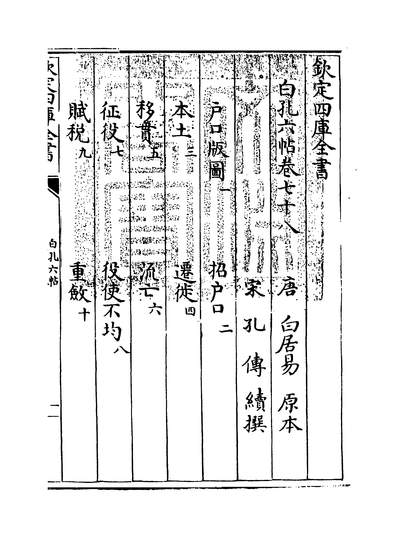 欽定四庫全書
白孔六帖卷七十八
唐 白居易 原本
宋 孔傳 續撰
戶口版圖一 招戶口二
本土三 遷徙四
移貫五 流亡六
征役七 役使不均八
賦稅九 重斂十
欽定四庫全書
白孔六帖
一